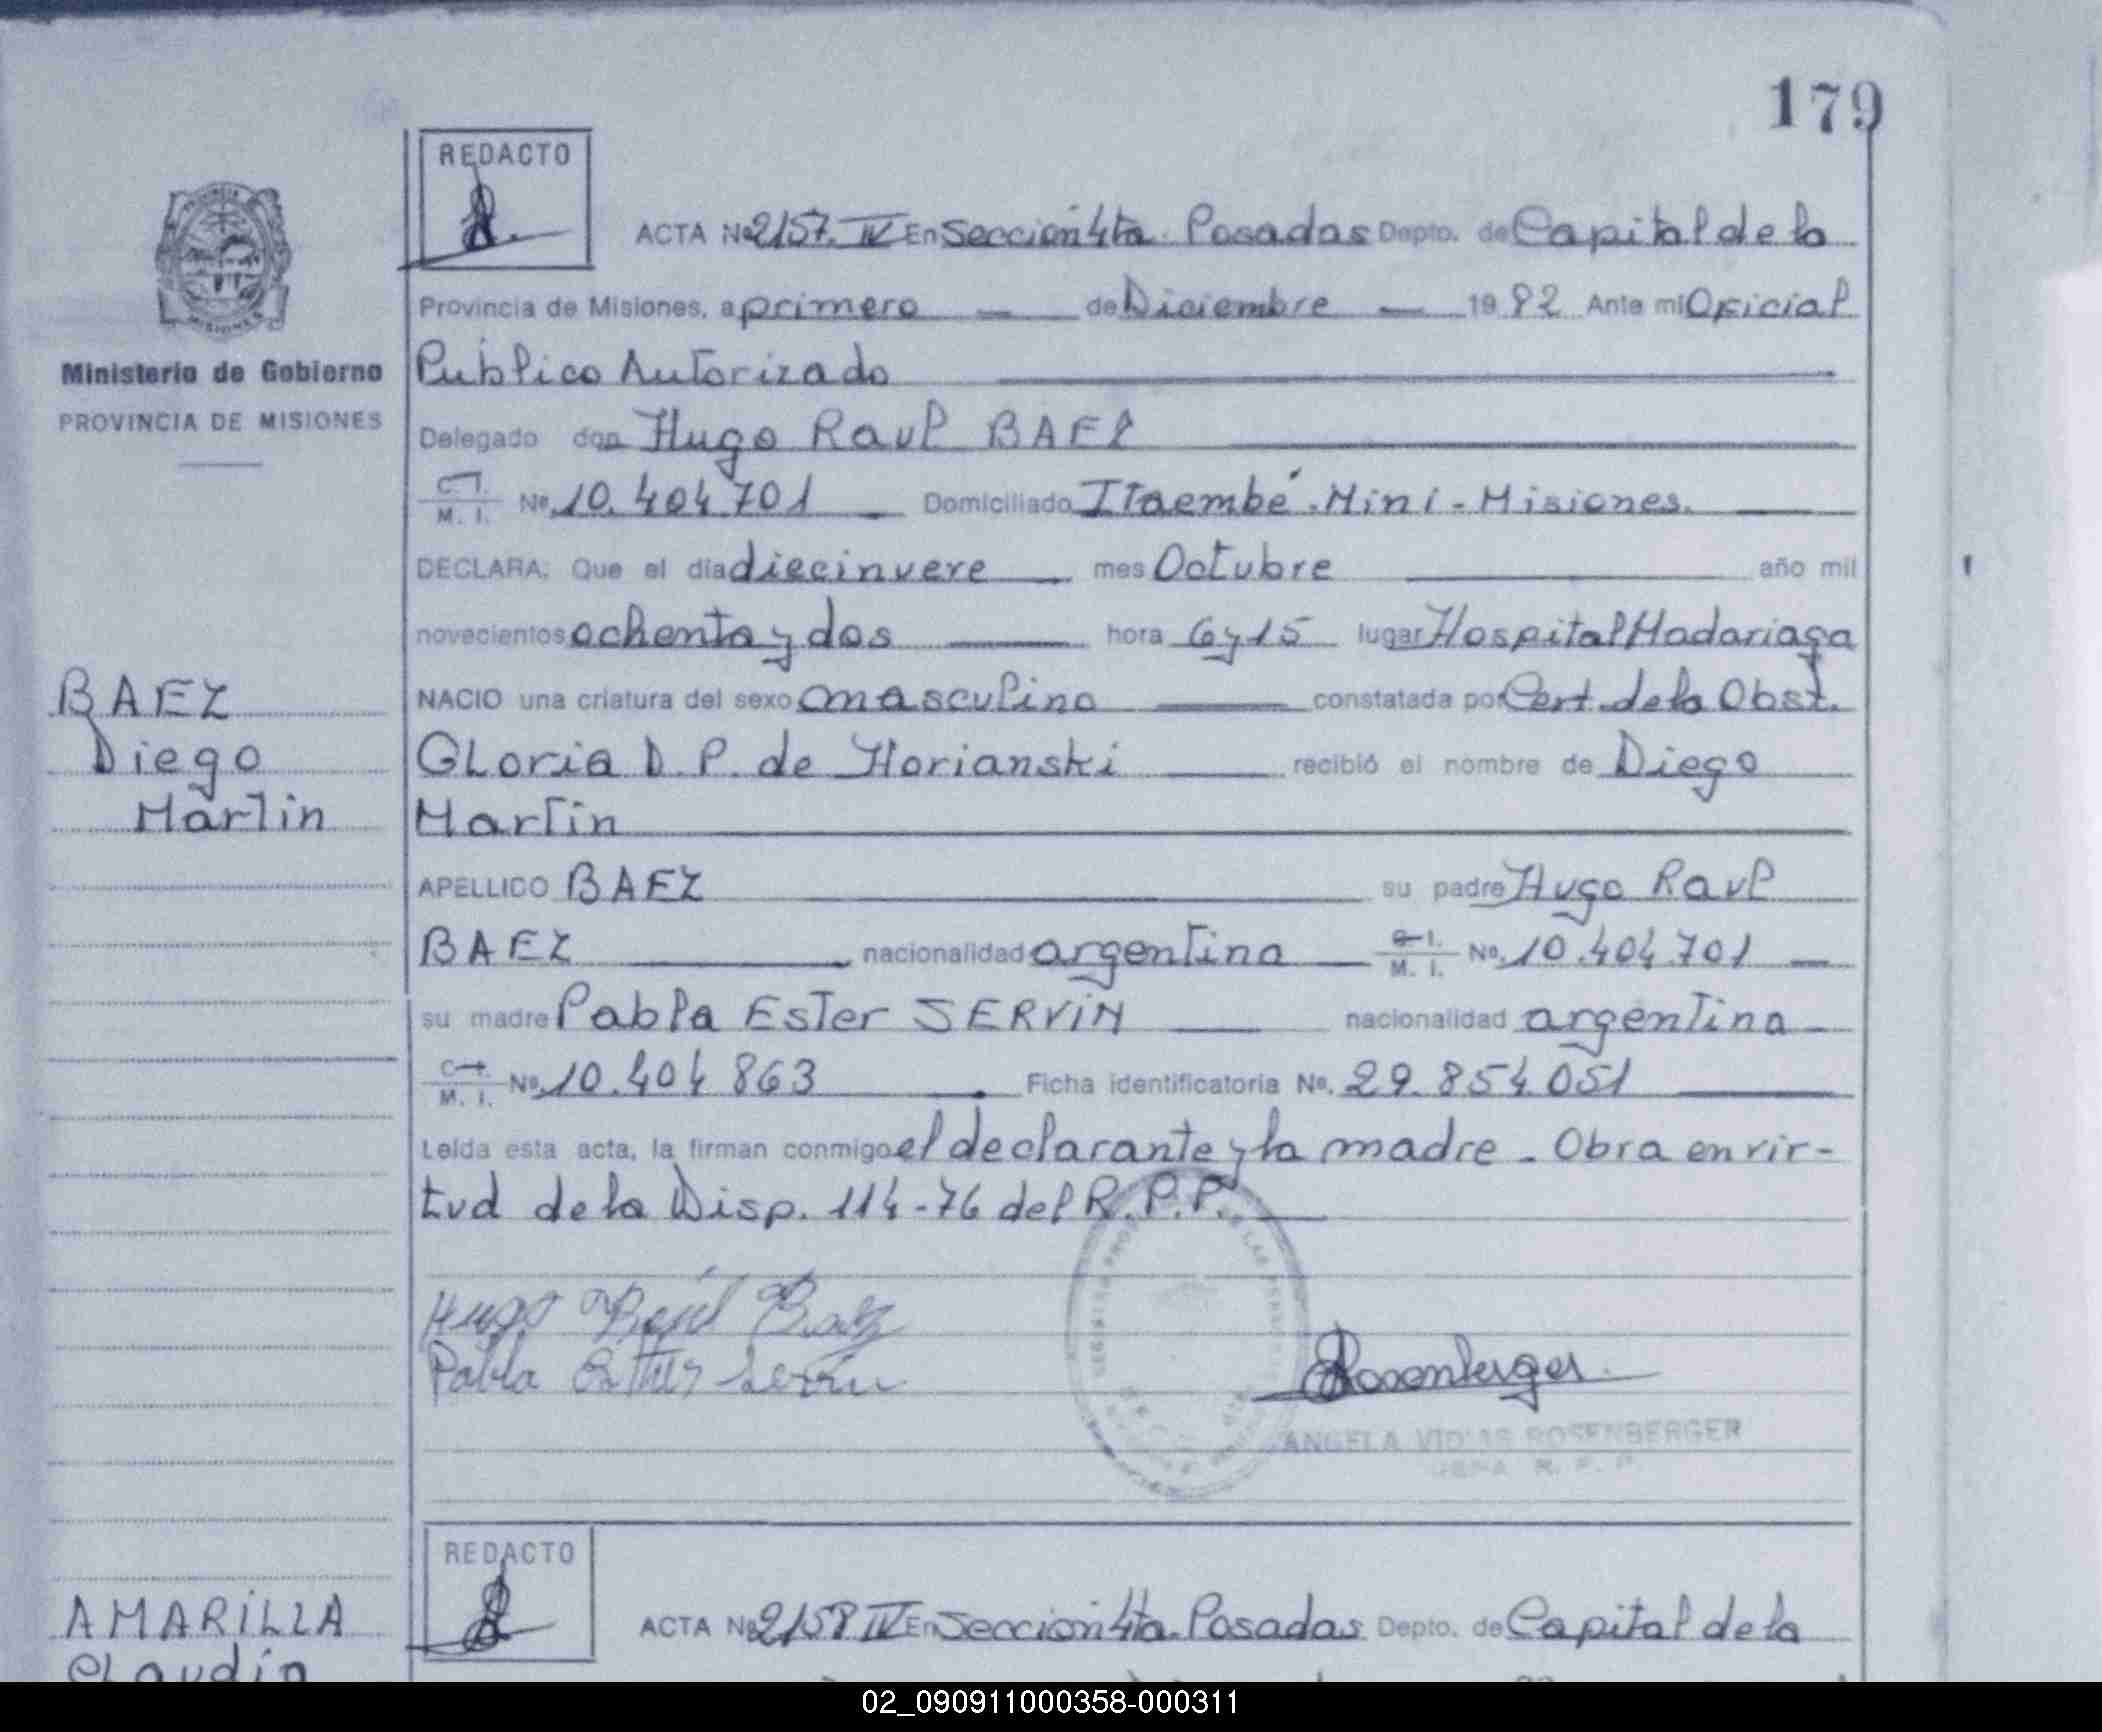 179
REDACTO
ACTA No 2157. IV En Sección 4ta. Posadas Depto. de Capital de la
Provincia de Misiones, a primero — de Diciembre — 1982 Ante mi Oficial
Ministerio de Gobierno
PROVINCIA DE MISIONES
Público Autorizado
Delegado don Hugo Raul BAEZ
C. I. M. I. No. 10.404.701 Domiciliado Itaembé-Mini-Misiones.
DECLARA: Que el día diecinueve mes Octubre año mil
novecientos ochenta y dos hora 6 y 15 lugar Hospital Madariaga
BAEZ
Diego
Martin
NACIO una criatura del sexo masculino constatada por Cert. de la Obst.
GLoria D. P. de Horianski recibió el nombre de Diego
Martin
APELLIDO BAEZ su padre Hugo Raul
BAEZ nacionalidad argentina C. I. M. I. No. 10.404.701
su madre Pabla Ester SERVIN nacionalidad argentina
C. I. M. I. No. 10.404 863 Ficha identificatoria No. 29.854.051
Leida esta acta, la firman conmigo el declarante y la madre. Obra en vir-
tud de la Disp. 114-76 del R.P.P.
Hugo Raúl Baez
Pabla Esther Servin
Rosenberger
ANGELA ROSENBERGER
R. P. P.
REDACTO
ACTA No 2158 IV En Sección 4ta. Posadas Depto. de Capital de la
AMARILLA
CLaudio
02_090911000358-000311